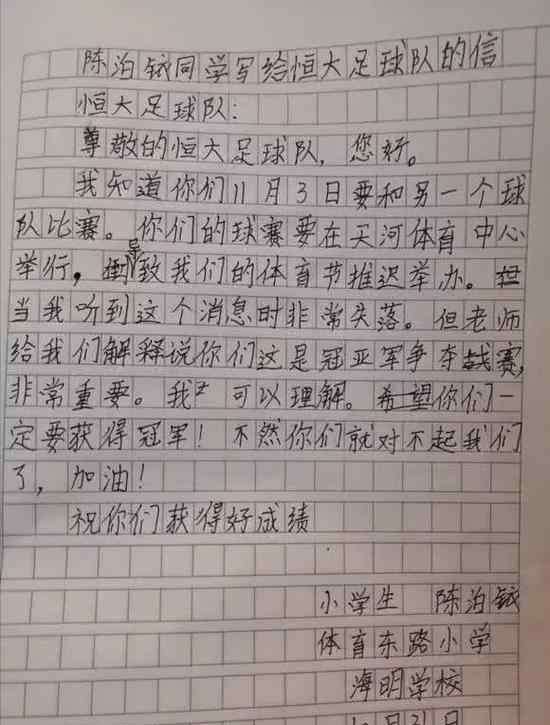 陈泊铱同学写给恒大足球队的信
恒大足球队：
尊敬的恒大足球队，您好。
我知道你们11月3日要和另一个球
队比赛。你们的球赛要在天河体育中心
举行，导致我们的体育节推迟举办。
当我听到这个消息时非常失落。但老师
给我们解释说你们这是冠亚军争夺战赛，
非常重要。我 可以理解。希望你们一
定要获得冠军！不然你们就对不起我们
了，加油！
祝你们获得好成绩
小学生 陈泊铱
体育东路小学
海明学校
月31日